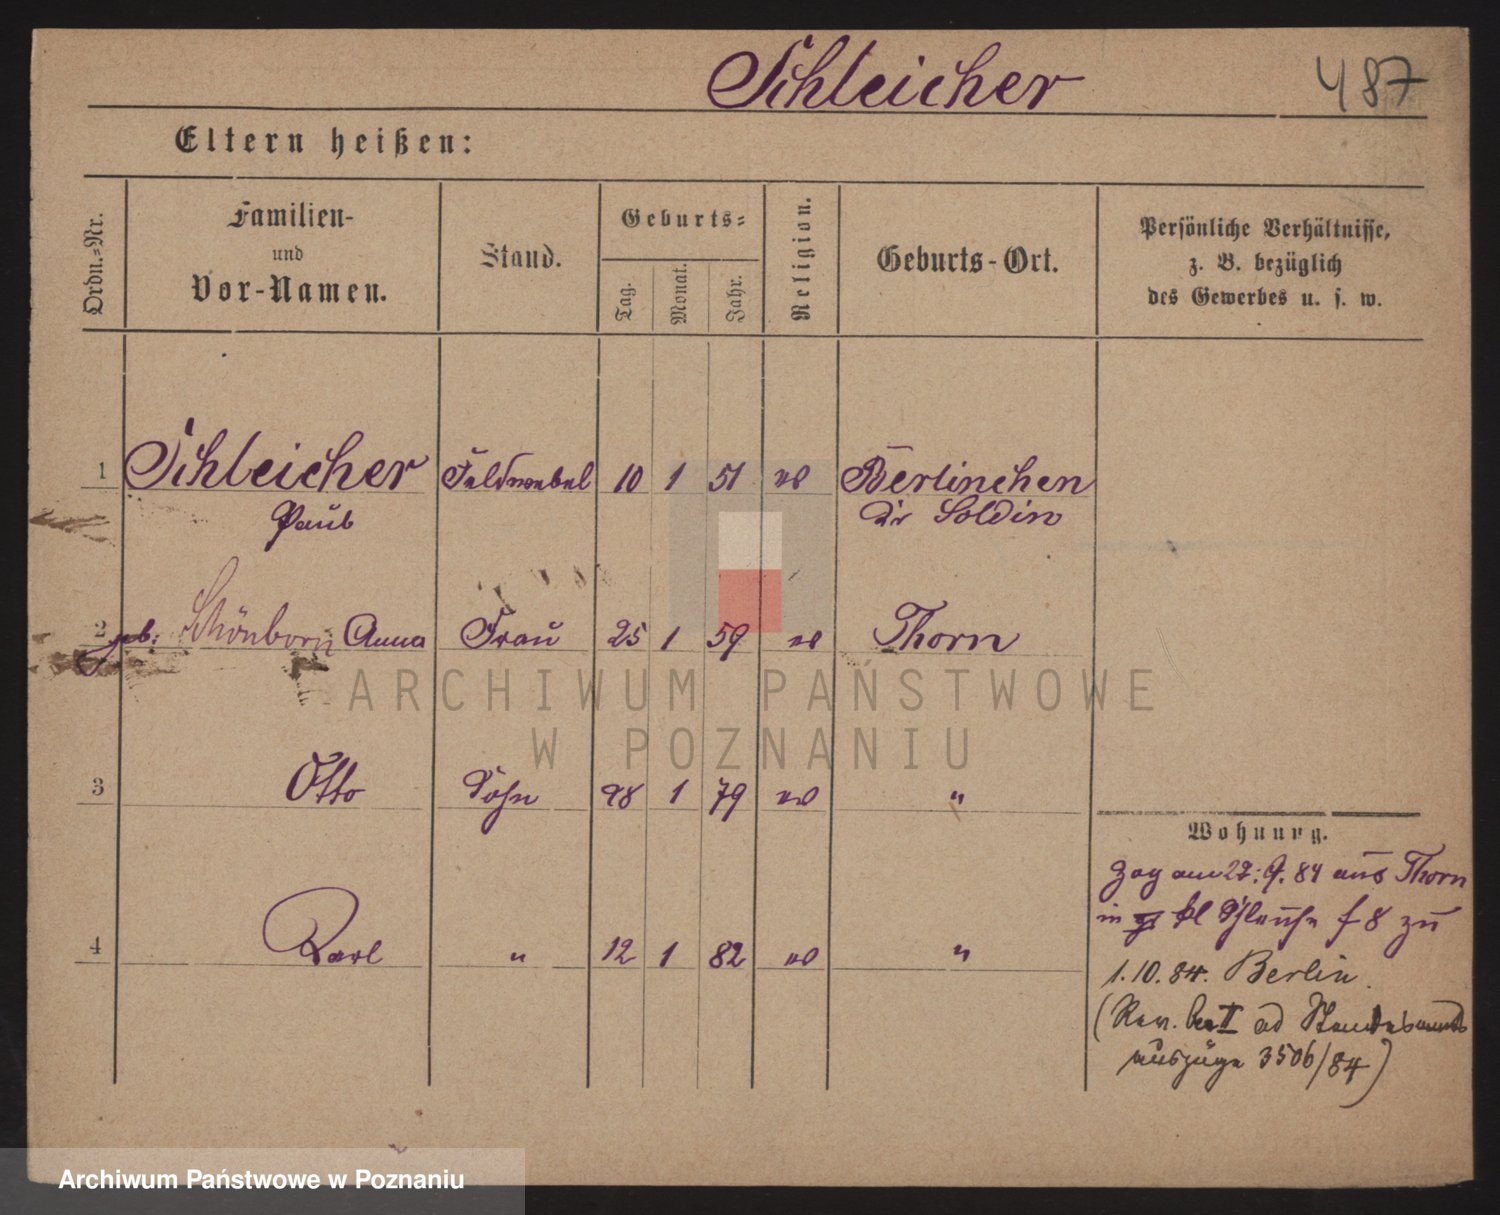 Schleicher 487
Eltern heißen:
Ordn.-Nr.
Familien-
und
Vor-Namen.
Stand.
Geburts-
Tag.
Monat.
Jahr.
Religion.
Geburts-Ort.
Persönliche Verhältnisse,
z. B. bezüglich
des Gewerbes u. s. w.
1 Schleicher Feldwebel 10 1 51 ev Berlinchen
Paul Kr Soldin
2 geb: Schönborn Anna Frau 25 1 59 ev Thorn
ARCHIWUM PAŃSTWOWE
W POZNANIU
3 Otto Sohn 28 1 79 ev "
Wohnung.
zog am 27. 9. 84 aus Thorn
in kl Schleuse f 8 zu
4 Karl " 12 1 82 ev "
1. 10. 84. Berlin.
(Rev. II ad Standesamts
auszüge 3506/84)
Archiwum Państwowe w Poznaniu